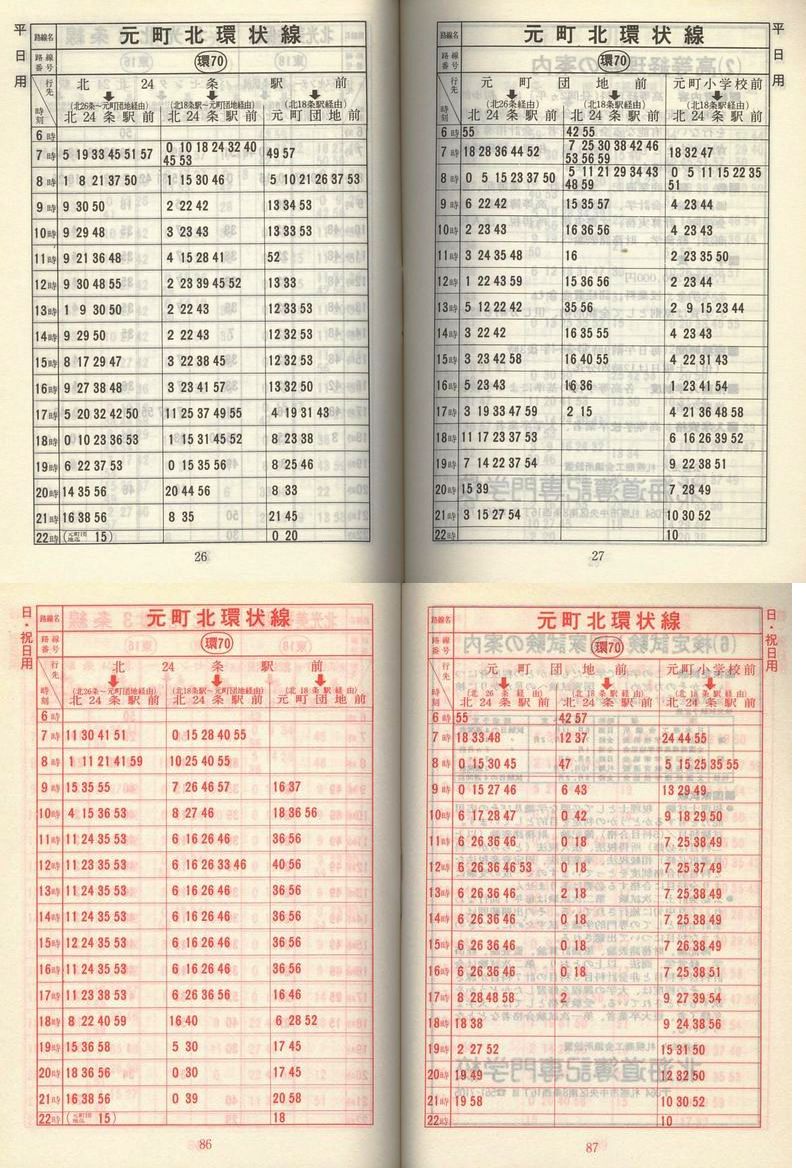 平日用
路線名 元町北環状線
路線番号 環70
行先 北24条駅前
時刻 (北26条～元町団地経由) (北18条駅～元町団地経由) (北18条駅経由)
北24条駅前 北24条駅前 元町団地前
6時
7時 5 19 33 45 51 57 0 10 18 24 32 40 45 53 49 57
8時 1 8 21 37 50 1 15 30 46 5 10 21 26 37 53
9時 9 30 50 2 22 42 13 34 53
10時 9 29 48 3 23 43 13 33 53
11時 9 21 36 48 4 15 28 41 52
12時 9 30 48 55 2 23 39 45 52 13 33
13時 1 9 30 50 2 22 43 12 33 53
14時 9 29 50 2 22 43 12 32 53
15時 8 17 29 47 3 22 38 45 12 32 53
16時 9 27 38 48 3 23 41 57 13 32 50
17時 5 20 32 42 50 11 25 37 49 55 4 19 31 43
18時 0 10 23 36 53 1 15 31 45 52 8 23 38
19時 6 22 37 53 0 15 35 56 8 25 46
20時 14 35 56 20 44 56 8 33
21時 16 38 56 8 35 21 45
22時 (元町団地迄 15) 0 20
26
平日用
路線名 元町北環状線
路線番号 環70
行先 元町団地前 元町小学校前
時刻 (北26条経由) (北18条駅経由) (北18条駅経由)
北24条駅前 北24条駅前 北24条駅前
6時 55 42 55
7時 18 28 36 44 52 7 25 30 38 42 46 53 56 59 18 32 47
8時 0 5 15 23 37 50 5 11 21 29 34 43 48 59 0 5 11 15 22 35 51
9時 6 22 42 15 35 57 4 23 44
10時 2 23 43 16 36 56 4 23 43
11時 3 24 35 48 16 2 23 35 50
12時 1 22 43 59 15 36 56 2 23 44
13時 5 12 22 42 35 56 2 9 15 23 44
14時 3 22 42 16 35 55 4 23 43
15時 3 23 42 58 16 40 55 4 22 31 43
16時 5 23 43 16 36 1 23 41 54
17時 3 19 33 47 59 2 15 4 21 36 48 58
18時 11 17 23 37 53 6 16 26 39 52
19時 7 14 22 37 54 9 22 38 51
20時 15 39 7 28 49
21時 3 15 27 54 10 30 52
22時 10
27
日・祝日用
路線名 元町北環状線
路線番号 環70
行先 北24条駅前
時刻 (北26条～元町団地経由) (北18条駅～元町団地経由) (北18条駅経由)
北24条駅前 北24条駅前 元町団地前
6時
7時 11 30 41 51 0 15 28 40 55
8時 1 11 21 41 59 10 25 40 55
9時 15 35 55 7 26 46 57 16 37
10時 4 15 36 53 8 27 46 18 36 56
11時 11 24 35 53 6 16 26 46 36 56
12時 11 23 35 53 6 16 26 33 46 40 56
13時 11 24 35 53 6 16 26 46 36 56
14時 11 24 35 53 6 16 26 46 36 56
15時 12 24 35 53 6 16 26 46 36 56
16時 11 24 35 53 6 16 26 46 36 56
17時 11 23 38 53 6 26 36 56 16 46
18時 8 22 40 59 16 40 6 28 52
19時 15 36 58 5 30 17 45
20時 18 36 56 0 30 17 45
21時 16 38 56 0 39 20 58
22時 (元町団地迄 15) 18
86
日・祝日用
路線名 元町北環状線
路線番号 環70
行先 元町団地前 元町小学校前
時刻 (北26条経由) (北18条駅経由) (北18条駅経由)
北24条駅前 北24条駅前 北24条駅前
6時 55 42 57
7時 18 33 48 12 37 24 44 55
8時 0 15 30 45 47 5 15 25 35 55
9時 0 15 27 46 6 43 13 29 49
10時 6 17 28 47 0 42 9 18 29 50
11時 6 26 36 46 0 18 7 25 38 49
12時 6 26 36 46 53 0 18 7 25 37 49
13時 6 26 36 46 2 18 7 25 38 49
14時 6 26 36 46 0 18 7 25 38 49
15時 6 26 36 46 0 18 7 26 38 49
16時 6 26 36 46 0 18 7 25 38 51
17時 8 28 48 58 2 9 27 39 54
18時 18 38 9 24 38 56
19時 2 27 52 15 31 50
20時 19 49 12 32 50
21時 19 58 10 30 52
22時 10
87